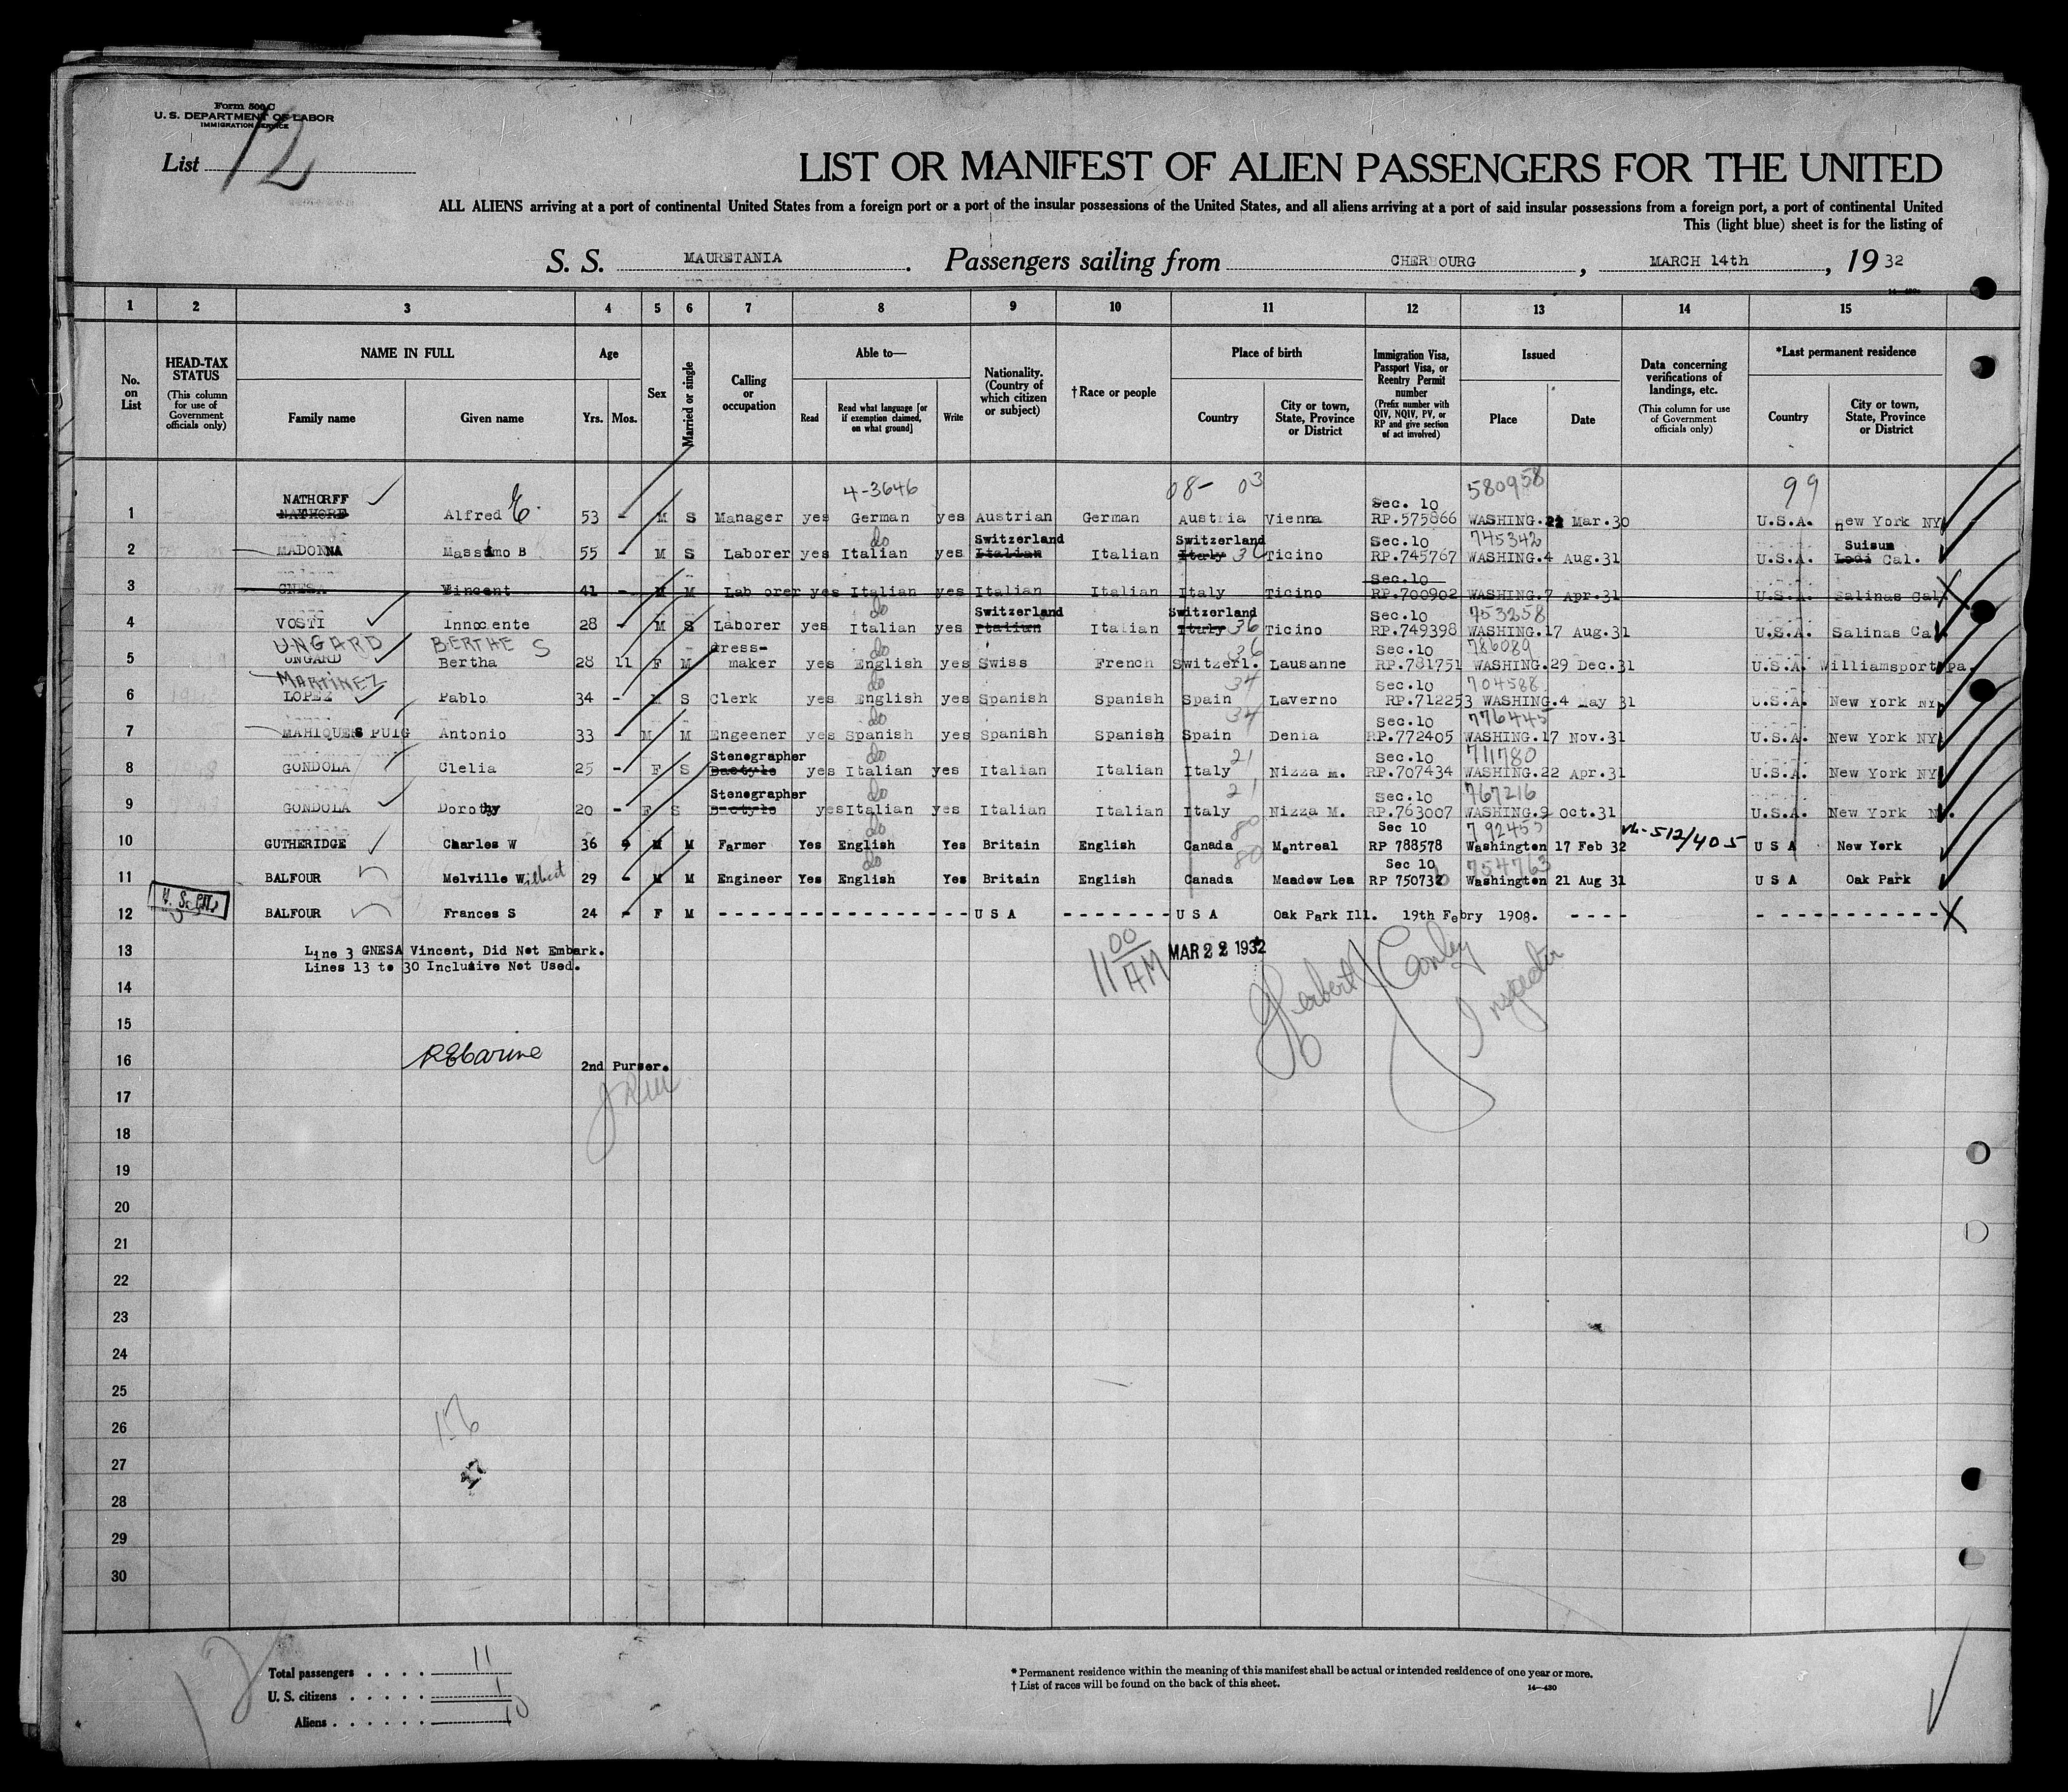 Form 500 C
U. S. DEPARTMENT OF LABOR
IMMIGRATION SERVICE
List 12
LIST OR MANIFEST OF ALIEN PASSENGERS FOR THE UNITED
ALL ALIENS arriving at a port of continental United States from a foreign port or a port of the insular possessions of the United States, and all aliens arriving at a port of said insular possessions from a foreign port, a port of continental United
This (light blue) sheet is for the listing of
S. S. MAURETANIA. Passengers sailing from CHERBOURG, MARCH 14th, 19 32
1 2 3 4 5 6 7 8 9 10 11 12 13 14 15
No. on List
HEAD-TAX STATUS (This column for use of Government officials only)
NAME IN FULL
Family name Given name
Age
Yrs. Mos.
Sex
Married or single
Calling or occupation
Able to—
Read Read what language [or if exemption claimed, on what ground] Write
Nationality. (Country of which citizen or subject)
†Race or people
Place of birth
Country City or town, State, Province or District
Immigration Visa, Passport Visa, or Reentry Permit number (Prefix number with QIV, NQIV, PV, or RP and give section of act involved)
Issued
Place Date
Data concerning verifications of landings, etc. (This column for use of Government officials only)
*Last permanent residence
Country City or town, State, Province or District
NATHORFF 4-3646 08- 03 Sec. 10 580958 99
1 NATHORF Alfred E. 53 - M S Manager yes German yes Austrian German Austria Vienna RP.575866 WASHING. Mar.30 U.S.A. new York NY
do Switzerland Switzerland Sec.10 745342 Suisun
2 MADONNA Massimo B 55 - M S Laborer yes Italian yes Italian Italian Italy 36 Ticino RP.745767 WASHING.4 Aug.31 U.S.A. Lodi Cal.
Sec.10
3 GNESA Vincent 41 - M M Lab orer yes Italian yes Italian Italian Italy Ticino RP.700902 WASHING.7 Apr.31 U.S.A. Salinas Cal
do Switzerland Switzerland Sec.10 753258
4 VOSTI Innocente 28 - M S Laborer yes Italian yes Italian Italian Italy 36 Ticino RP.749398 WASHING.17 Aug.31 U.S.A. Salinas Ca
UNGARD BERTHE S dress- do 36 Sec.10 786089
5 UNGARD Bertha 28 11 F M maker yes English yes Swiss French Switzerl. Lausanne RP.781751 WASHING.29 Dec.31 U.S.A. Williamsport pa.
MARTINEZ do 34 Sec.10 704588
6 LOPEZ Pablo 34 - M S Clerk yes English yes Spanish Spanish Spain Laverno RP.712253 WASHING.4 May 31 U.S.A. New York NY
do 34 Sec.10 776445
7 MAHIQUES PUIG Antonio 33 - M M Engeener yes Spanish yes Spanish Spanish Spain Denia RP.772405 WASHING.17 Nov.31 U.S.A. New York NY
Stenographer do 21 Sec.10 711780
8 GONDOLA Clelia 25 - F S Dactylo yes Italian yes Italian Italian Italy Nizza m. RP.707434 WASHING.22 Apr.31 U.S.A. New York NY
Stenographer do 21 Sec.10 767216
9 GONDOLA Dorothy 20 - F S Dactylo yes Italian yes Italian Italian Italy Nizza M. RP.763007 WASHING.9 oct.31 U.S.A. New York N.
do 80 Sec 10
10 GUTHERIDGE Charles W 36 - M M Farmer Yes English Yes Britain English Canada Montreal RP 788578 Washington 17 Feb 32 512/405 U S A New York
do 80 Sec 10 754763
11 BALFOUR Melville Wilbert 29 - M M Engineer Yes English Yes Britain English Canada Meadow Lea RP 750732 Washington 21 Aug 31 U S A Oak Park
U. S. Cit.
12 BALFOUR Frances S 24 - F M - - - - U S A - - - - U S A Oak Park Ill. 19th Febry 1908. - - - -
13 Line 3 GNESA Vincent, Did Not Embark.
Lines 13 to 30 Inclusive Not Used.
11 00 AM MAR 22 1932
Herbert J Conley
Inspector
14
15
16 2nd Purser.
17
18
19
20
21
22
23
24
25
26 156
27
28
29
30
12
Total passengers . . . . 11
U. S. citizens . . . . . 1
Aliens . . . . . . 10
* Permanent residence within the meaning of this manifest shall be actual or intended residence of one year or more.
† List of races will be found on the back of this sheet.
14—430